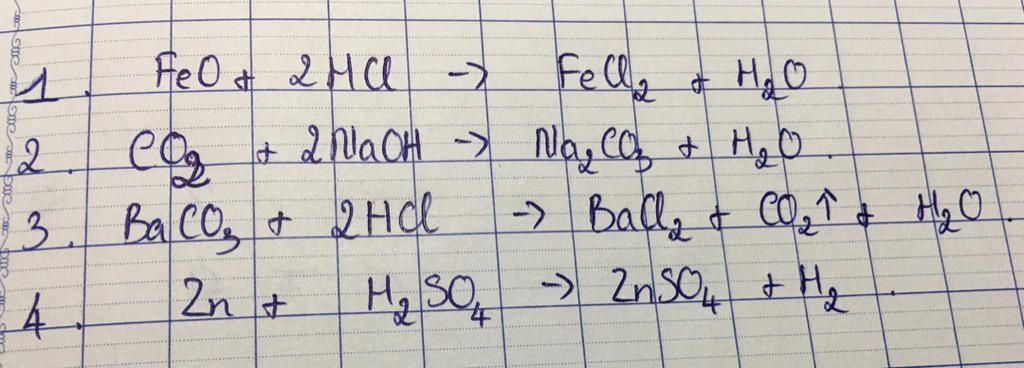 1. FeO + 2HCl → FeCl₂ + H₂O.
2. CO₂ + 2NaOH → Na₂CO₃ + H₂O.
3. BaCO₃ + 2HCl → BaCl₂ + CO₂↑ + H₂O.
4. Zn + H₂SO₄ → ZnSO₄ + H₂.